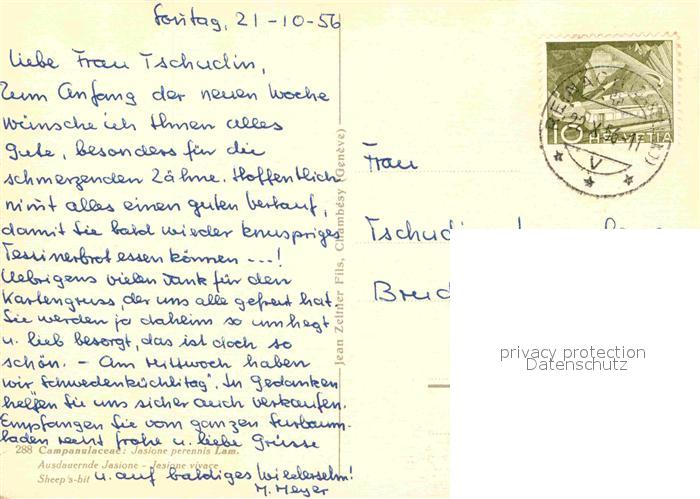 Sontag, 21-10-56
Liebe Frau Tschudin,
Zum Anfang der neuen Woche
wünsche ich Ihnen alles
Gute, besonders für die
schmerzenden Zähne. Hoffentlich
nimt alles einen guten Verlauf,
damit Sie bald wieder knuspriges
Tessinerbrot essen können ---!
Uebrigens vielen Dank für den
Kartengruss, der uns alle gefreut hat.
Sie werden ja daheim so umhegt
u. lieb besorgt, das ist doch so
schön. - Am Mittwoch haben
wir "Schwedenküchlitag". In Gedanken
helfen Sie uns sicher auch verkaufen.
Empfangen Sie vom ganzen
laden recht frohe u. liebe Grüsse
u. auf baldiges Wiedersehn!
M. Meyer
288 Campanulaceae: Jasione perennis Lam.
Ausdauernde Jasione - Jasione vivace
Sheep's-bit
Jean Zellner Fils, Chambésy (Genève)
10 HELVETIA
22.X.56-11
V
Frau
Tschudin
Breid
privacy protection
Datenschutz